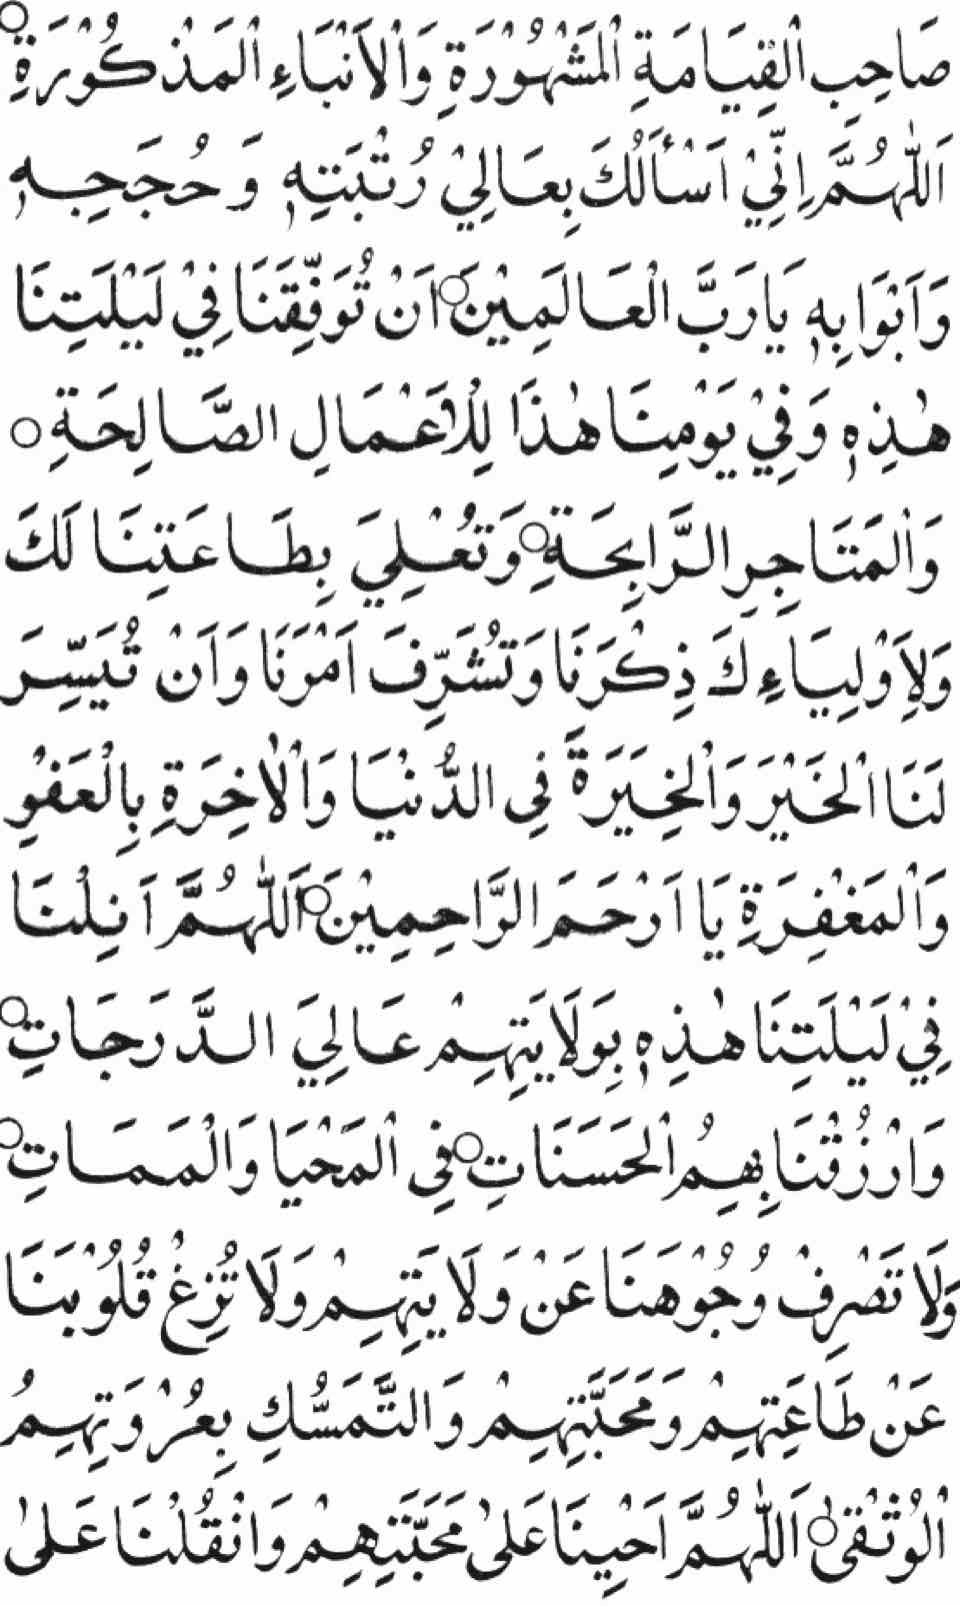 صَاحِبِ الْقِيَامَةِ الْمَشْهُوْرَةِ وَالْاَنْبَاءِ الْمَذْكُوْرَةِ○
اَللّٰهُمَّ اِنِّيْ اَسْأَلُكَ بِعَالِيْ رُتْبَتِهٖ وَ حُجَجِهٖ
وَاَبْوَابِهٖ يَارَبَّ الْعَالَمِيْنَ○ اَنْ تُوَفِّقَنَا فِيْ لَيْلَتِنَا
هٰذِهٖ وَفِيْ يَوْمِنَا هٰذَا لِلْاَعْمَالِ الصَّالِحَةِ○
وَالْمَتَاجِرِ الرَّابِحَةِ○ وَتُعْلِيَ بِطَاعَتِنَا لَكَ
وَلِاَوْلِيَاءِكَ ذِكْرَنَا وَتُشَرِّفَ اَمْرَنَا وَاَنْ تُيَسِّرَ
لَنَا الْخَيْرَ وَالْخِيَرَةَ فِي الدُّنْيَا وَالْاٰخِرَةِ بِالْعَفْوِ
وَالْمَغْفِرَةِ يَا اَرْحَمَ الرَّاحِمِيْنَ○ اَللّٰهُمَّ اَنِلْنَا
فِيْ لَيْلَتِنَا هٰذِهٖ بِوَلَايَتِهِمْ عَالِيَ الدَّرَجَاتِ○
وَارْزُقْنَا بِهِمُ الْحَسَنَاتِ○ فِي الْمَحْيَا وَالْمَمَاتِ○
وَلَا تَصْرِفْ وُجُوْهَنَا عَنْ وَلَايَتِهِمْ وَلَا تُزِغْ قُلُوْبَنَا
عَنْ طَاعَتِهِمْ وَمَحَبَّتِهِمْ وَالتَّمَسُّكِ بِعُرْوَتِهِمُ
الْوُثْقٰى○ اَللّٰهُمَّ اَحْيِنَا عَلىٰ مَحَبَّتِهِمْ وَانْقُلْنَا عَلىٰ